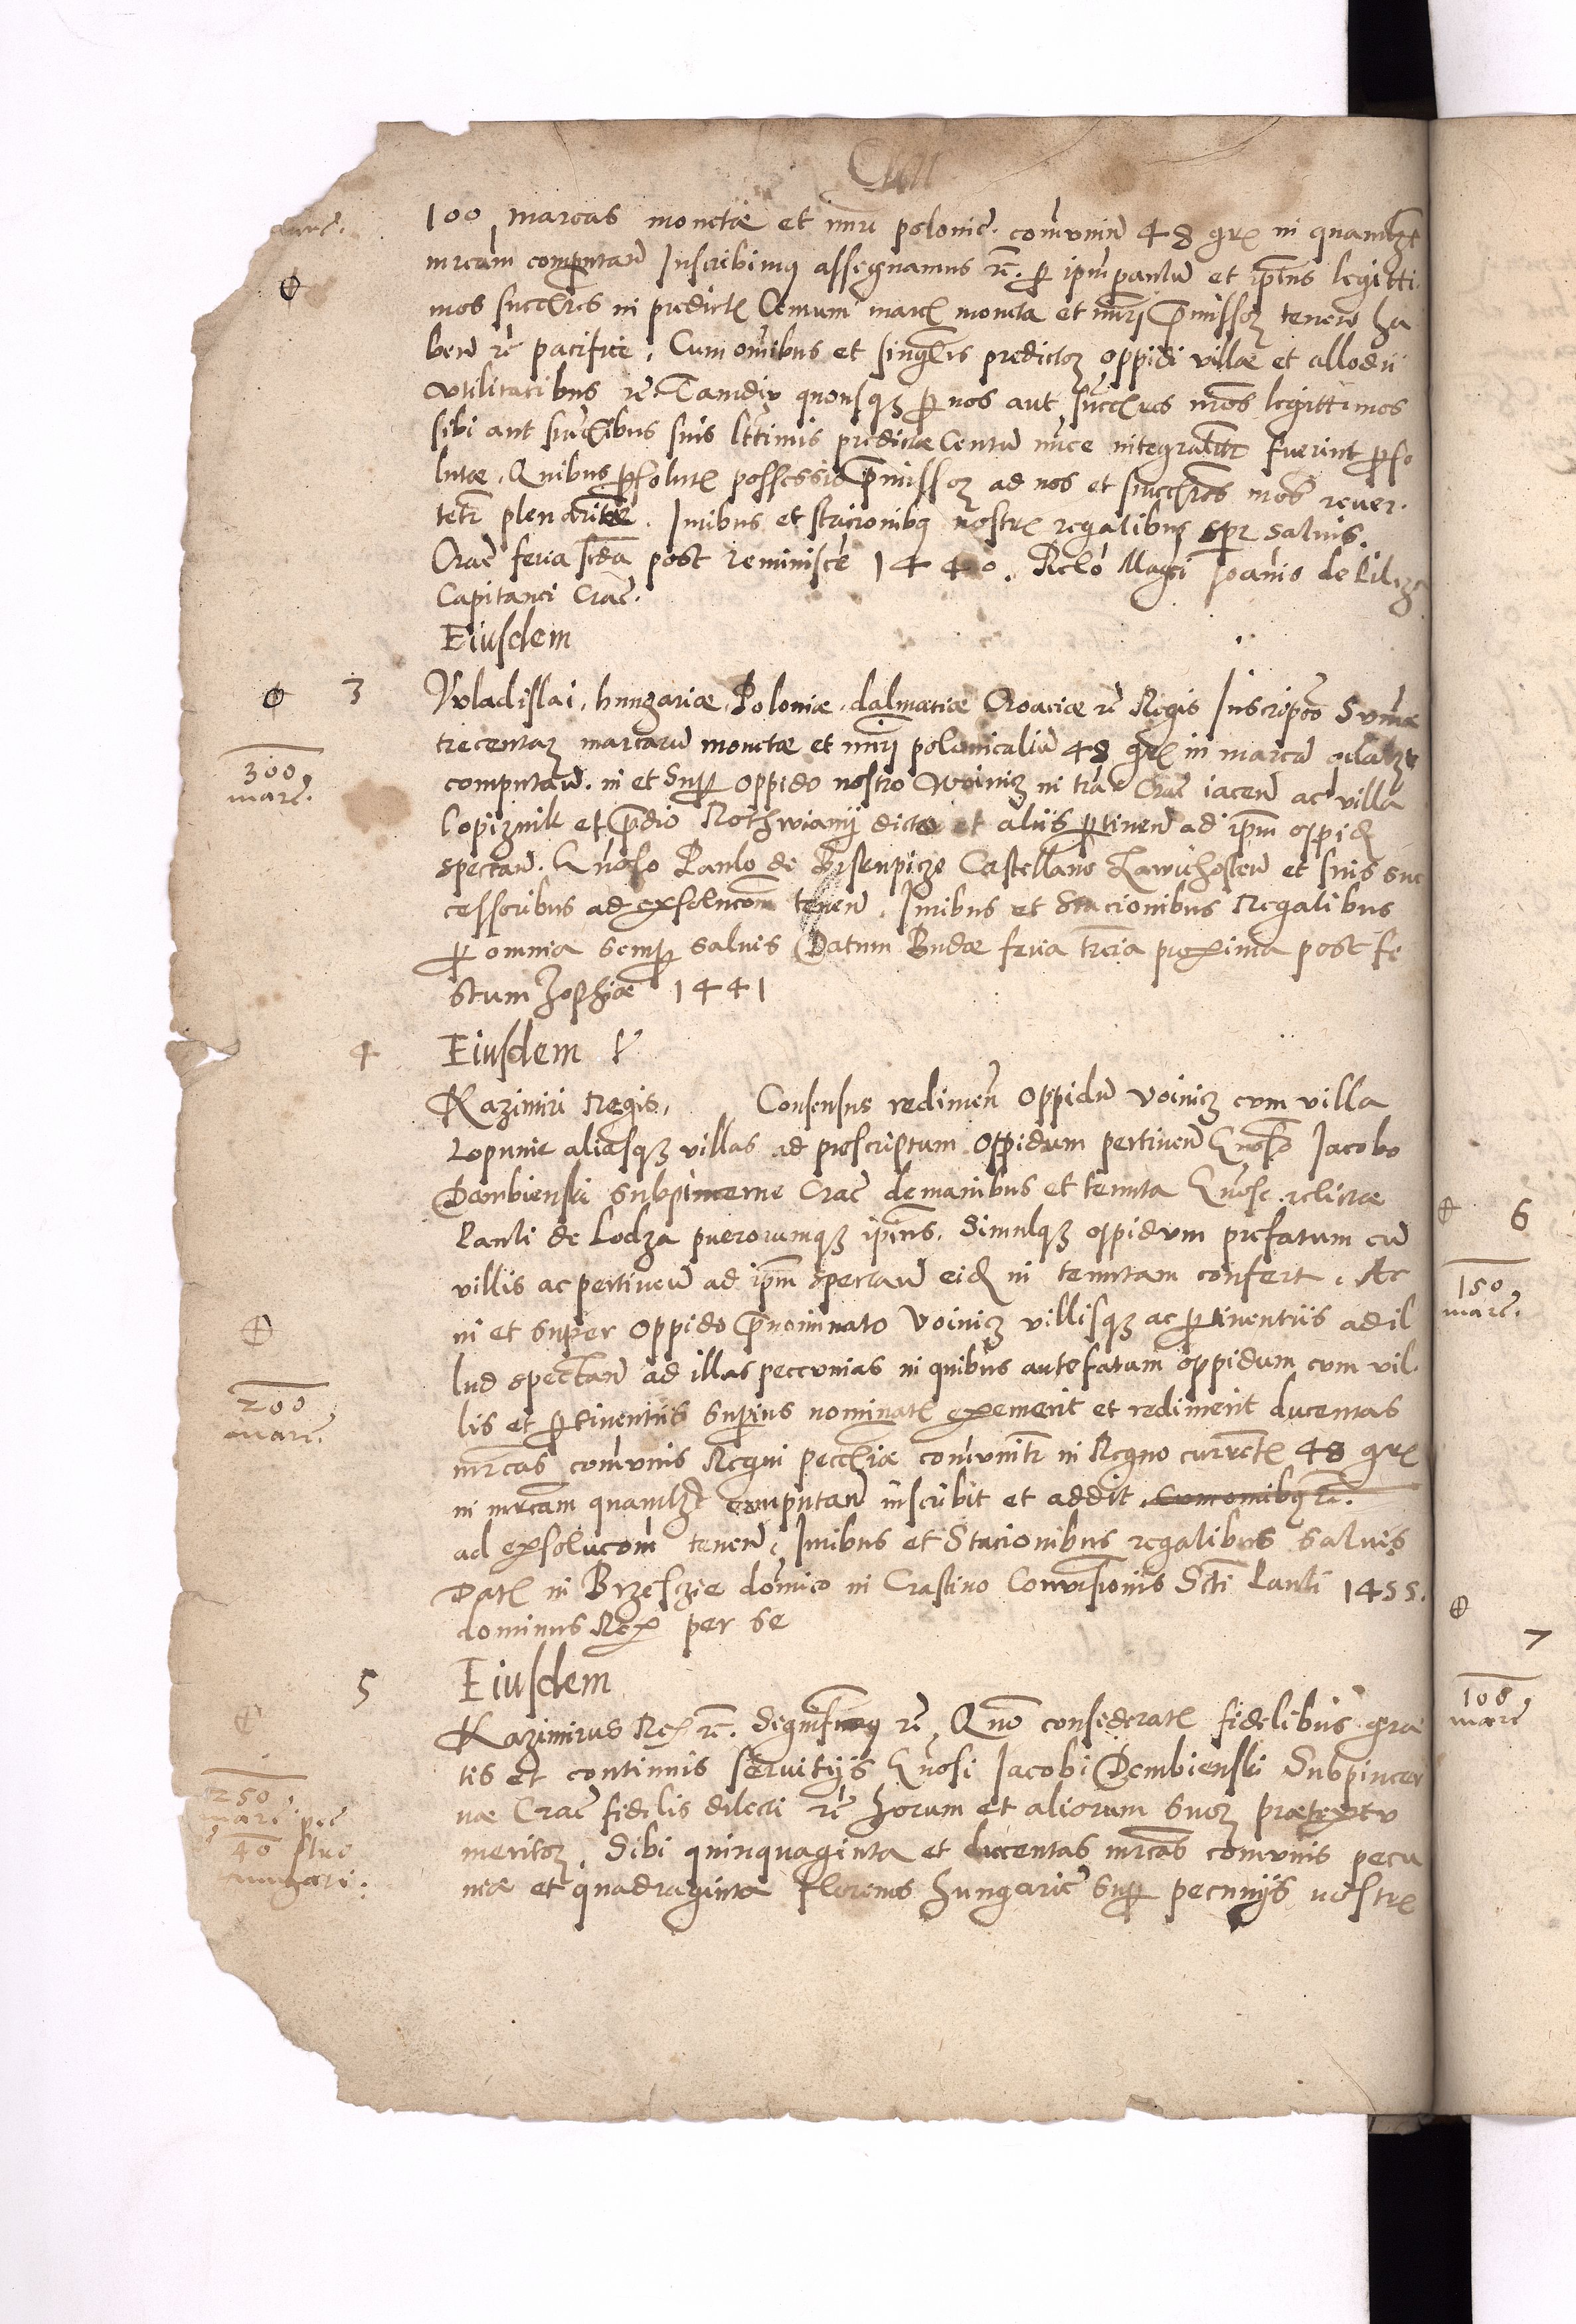 100 marcas monetæ et nūri polonic. com̄unin̄ 48 grs in quamlzt
mrcam computan̄ Inscribimus assegnamus rc. p ipm paulum et ipīus legitti
mos succr̄es in predictis Centum marcs moneta et nūri p̄missorum tenen̄ ha
ben̄ rc pacifice. Cum om̄ibus et singlis predictorum oppidi villæ et allodii
vtilitatibus rc Tamdiu quousq3 p nos aut succr̄es nr̄os legittimos
sibi aut succr̄ibus suis lttimis predictæ Centum mrce integraliter fuerint pso
lutæ. Quibus psolutis possessio p̄missorum ad nos et succr̄es nr̄os reuer.
tetr plenarie. Iuribus et stacionibus nostris regalibus spr saluis.
Crac̄ feria scda post reminisce 1440. Relo Magci Ioānis de
Capitanei Crac̄.
Eiusdem
3 Vvladislai, hungariæ, Poloniæ, dalmatiæ Croaciæ rc Regis Inscripto Summæ
trecentarum marcarum monetæ et nūri polonicalium 48 grs in marcā qualzt
300 marc.
computan̄. in et Supr oppido nostro Woinicz in trā Crac̄ iacen̄ ac villa
Lopiznik et p̄dio Rothwiany dicto et aliis ptinen̄ ad ipm oppid
spectan̄. Gn̄oso Paulo de Castellano Zawichosten̄ et suis suc
cessoribus ad exsolucom̄ tenen̄. Iuribus et Stacionibus Regalibus
p omnia semp saluis Datum Budæ feria trcia proxima post fe
stum Zophiæ 1441
4 Eiusdem
Kazimiri Regis, Consensus redimen̄ oppidum Voinicz cum villa
Lopunie aliasq3 villas ad prescriptum oppidum pertinen̄ Gn̄oso Iacobo
Dembienski subpincerne Crac̄ de manibus et tenuta Gn̄osæ relictæ
Pauli de Lodza puerorumq3 ipīus. Simulq3 oppidum prefatum cū
villis ac pertinen̄ ad ipm spectan̄ eid in tenutam confert. Ac
in et super oppido p̄nominato Voinicz villisq3 ac ptinentiis ad il
lud spectan̄ ad illas peccunias in quibus antefatum oppidum cum vil
200 marc.
lis et ptinentiis superius nominatis exemerit et redimerit ducentas
mrcas com̄unis Regni pecc̄iæ com̄unitr in Regno currentis 48 grs
in mrcam quamlzt computan̄ inscribit et addit cum omibus rc.
ad exsolucom̄ tenen̄. Iuribus et Stacionibus regalibus saluis
Dats in Brzeszie dōmico in Crastino Conuersionis Scti Pauli 1455.
dominus Rex per se
5 Eiusdem
Kazimirus Rex rc. Significamus rc, Quō consideratis fidelibus gra
tis et continuis seruitijs Gn̄osi Iacobi Dembienski Subpincer
250 marc. pec
næ Crac̄ fidelis dilecti rc horum et aliorum suorum prætextu
40 flor
meritorum, Sibi quinquaginta et ducentas mrcas com̄unis pecu
hungari.
niæ et quadraginta florenos hungaric̄ supr pecunijs nostris
6
150 marc.
7
100 marc